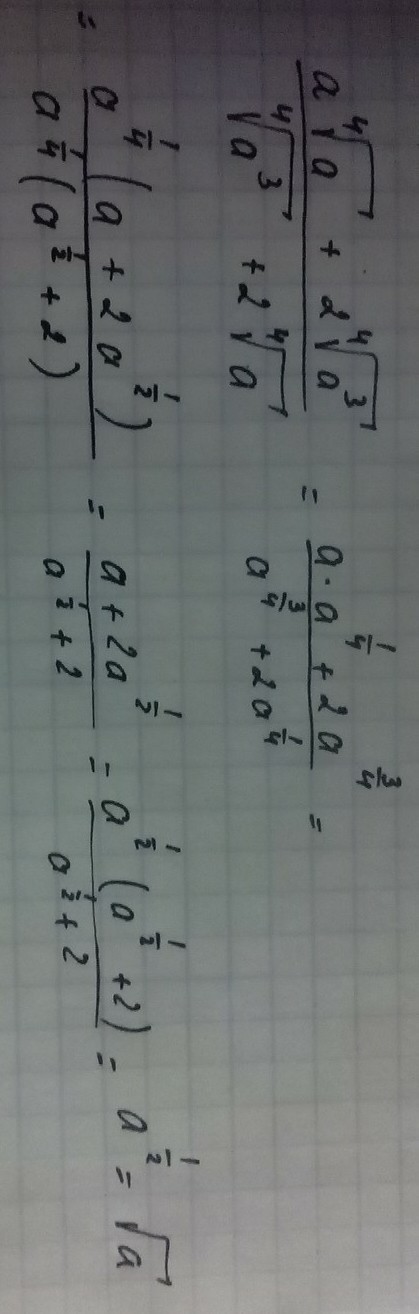 (a⁴√a + 2⁴√a³)/(⁴√a³ + 2⁴√a) = (a·a^(1/4) + 2a^(3/4))/(a^(3/4) + 2a^(1/4)) =
= (a^(1/4)(a + 2a^(1/2)))/(a^(1/4)(a^(1/2) + 2)) = (a + 2a^(1/2))/(a^(1/2) + 2) = (a^(1/2)(a^(1/2) + 2))/(a^(1/2) + 2) = a^(1/2) = √a